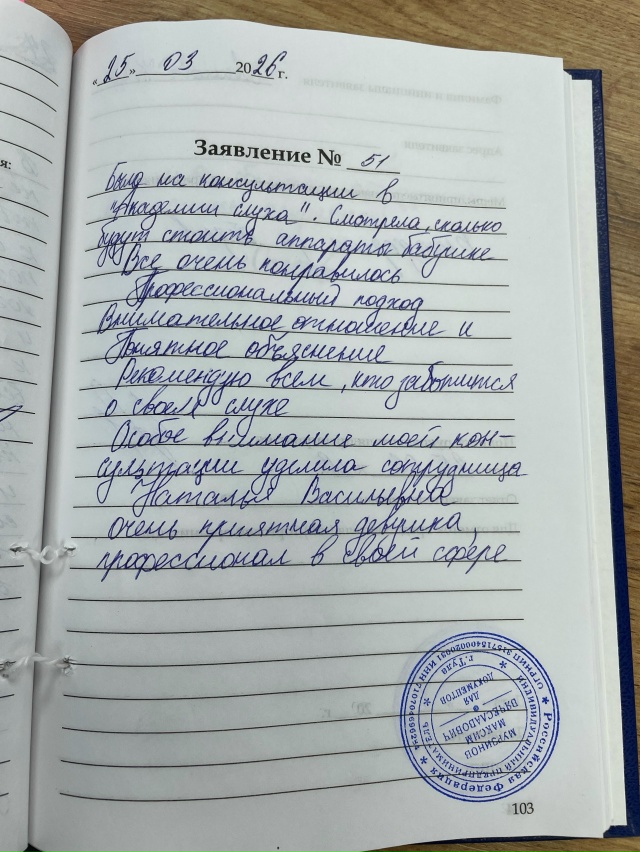 «25» 03 2026 г.
Заявление № 51
Была на консультации в
"Академии слуха". Смотрела, сколько
будут стоить аппараты бабушке
Все очень понравилось
Профессиональный подход
Внимательное отношение и
Понятное объяснение
Рекомендую всем, кто заботится
о своем слухе
Особое внимание моей кон-
сультации уделила сотрудница
Наталья Васильевна,
очень приятная девушка,
профессионал в своей сфере
я:
Российская Федерация
ИНДИВИДУАЛЬНЫЙ ПРЕДПРИНИМАТЕЛЬ
г. Тула
МУРЗИНОВ
МАКСИМ
ВЯЧЕСЛАВОВИЧ
ДЛЯ
ДОКУМЕНТОВ
103